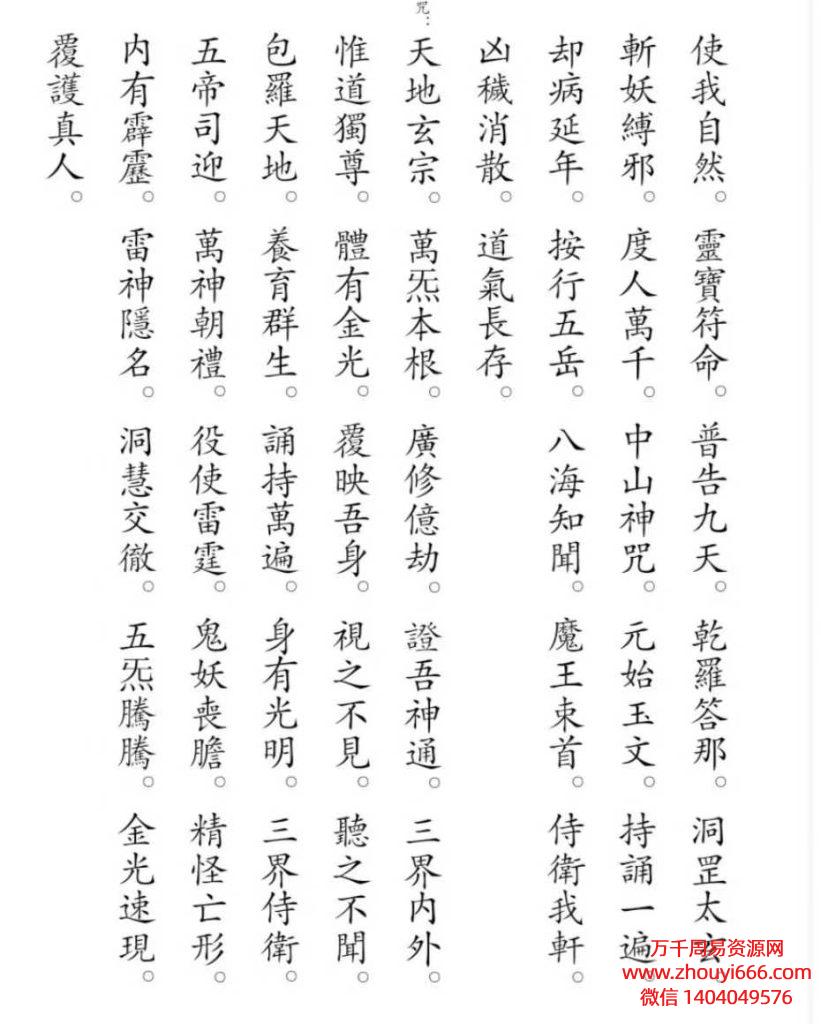 使我自然。靈寶符命。普告九天。乾羅答那。洞罡太玄。
斬妖縛邪。度人萬千。中山神咒。元始玉文。持誦一遍。
却病延年。按行五岳。八海知聞。魔王束首。侍衛我軒。
凶穢消散。道氣長存。
咒：
天地玄宗。萬炁本根。廣修億劫。證吾神通。三界内外。
惟道獨尊。體有金光。覆映吾身。視之不見。聽之不聞。
包羅天地。養育群生。誦持萬遍。身有光明。三界侍衛。
五帝司迎。萬神朝禮。役使雷霆。鬼妖喪膽。精怪亡形。
内有霹靂。雷神隱名。洞慧交徹。五炁騰騰。金光速現。
覆護真人。
万千周易资源网
www.zhouyi666.com
微信 1404049576